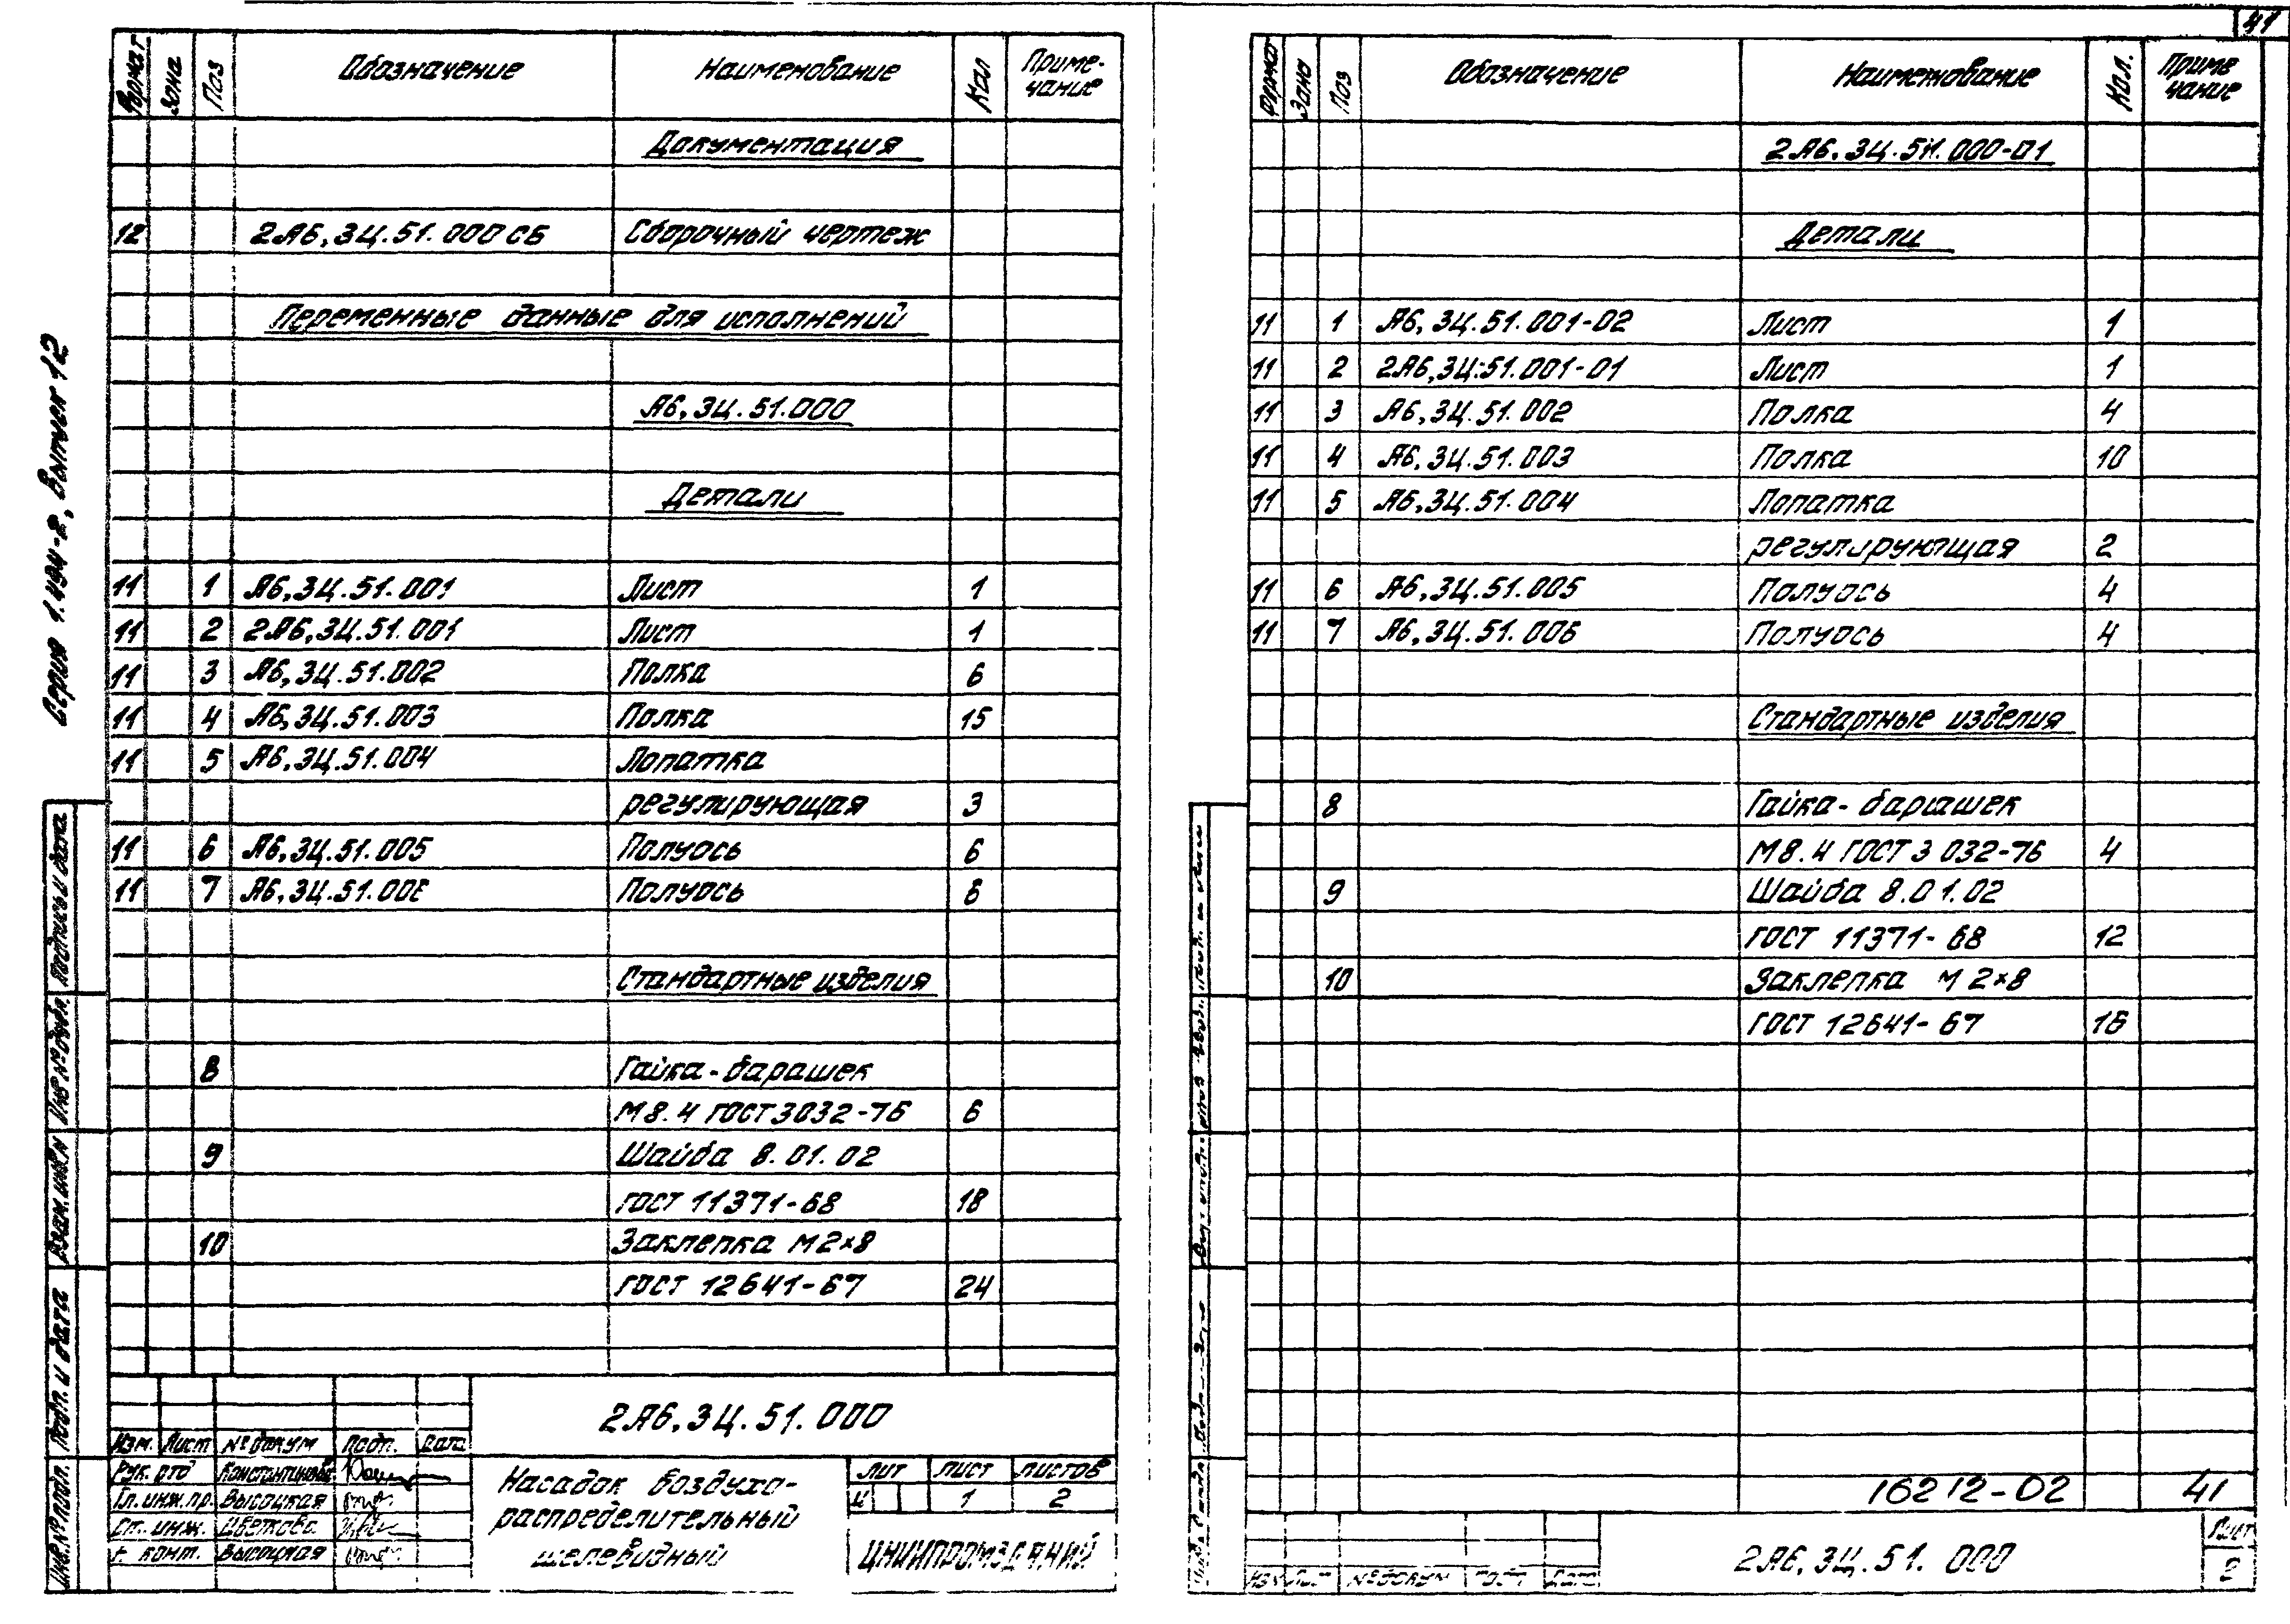 41
Серия 1.494-2, Выпуск 12
Формат Зона Поз Обозначение Наименование Кол Приме-
чание
Документация
12 2А6,3Ц.51.000 СБ Сборочный чертеж
Переменные данные для исполнений
А6,3Ц.51.000
Детали
11 1 А6,3Ц.51.001 Лист 1
11 2 2А6,3Ц.51.001 Лист 1
11 3 А6,3Ц.51.002 Полка 6
11 4 А6,3Ц.51.003 Полка 15
11 5 А6,3Ц.51.004 Лопатка
регулирующая 3
11 6 А6,3Ц.51.005 Полуось 6
11 7 А6,3Ц.51.006 Полуось 6
Стандартные изделия
8 Гайка-барашек
М8.4 ГОСТ 3032-76 6
9 Шайба 8.01.02
ГОСТ 11371-68 18
10 Заклепка М2×8
ГОСТ 12641-67 24
2А6,3Ц.51.000
Изм. Лист № докум Подп. Дата
Рук. отд Константинова
Гл. инж. пр. Высоцкая
Ст. инж. Цветкова
Н. конт. Высоцкая
Насадок воздухо-
распределительный
щелевидный
Лит Лист Листов
И 1 2
ЦНИИПРОМЗДАНИЙ
Подпись и дата
Инв № дубл.
Взам. инв. №
Подп. и дата
Инв. № подл.
Формат Зона Поз Обозначение Наименование Кол. Приме
чание
2А6,3Ц.51.000-01
Детали
11 1 А6,3Ц.51.001-02 Лист 1
11 2 2А6,3Ц.51.001-01 Лист 1
11 3 А6,3Ц.51.002 Полка 4
11 4 А6,3Ц.51.003 Полка 10
11 5 А6,3Ц.51.004 Лопатка
регулирующая 2
11 6 А6,3Ц.51.005 Полуось 4
11 7 А6,3Ц.51.006 Полуось 4
Стандартные изделия
8 Гайка-барашек
М8.4 ГОСТ 3032-76 4
9 Шайба 8.01.02
ГОСТ 11371-68 12
10 Заклепка М2×8
ГОСТ 12641-67 16
16212-02 41
Изм Лист № докум Подп Дата
2А6,3Ц.51.000
Лист
2